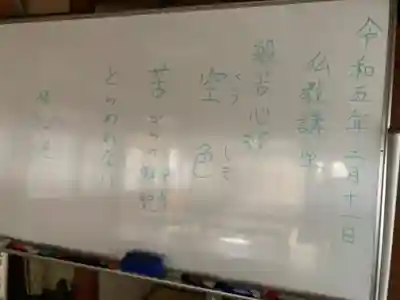 令和五年二月十一日
仏教講座
般若心経
空 くう 色 しき
苦 からの解
とらわれない